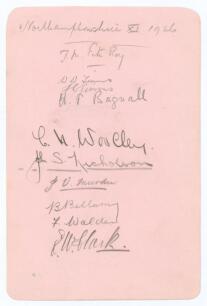 Northamptonshire XI 1926
T. Fitz Roy
H. F. Bagnall
C. N. Woolley
S. Nicholson
J. V. Murdin
B Bellamy
F. Walden
E W Clark.